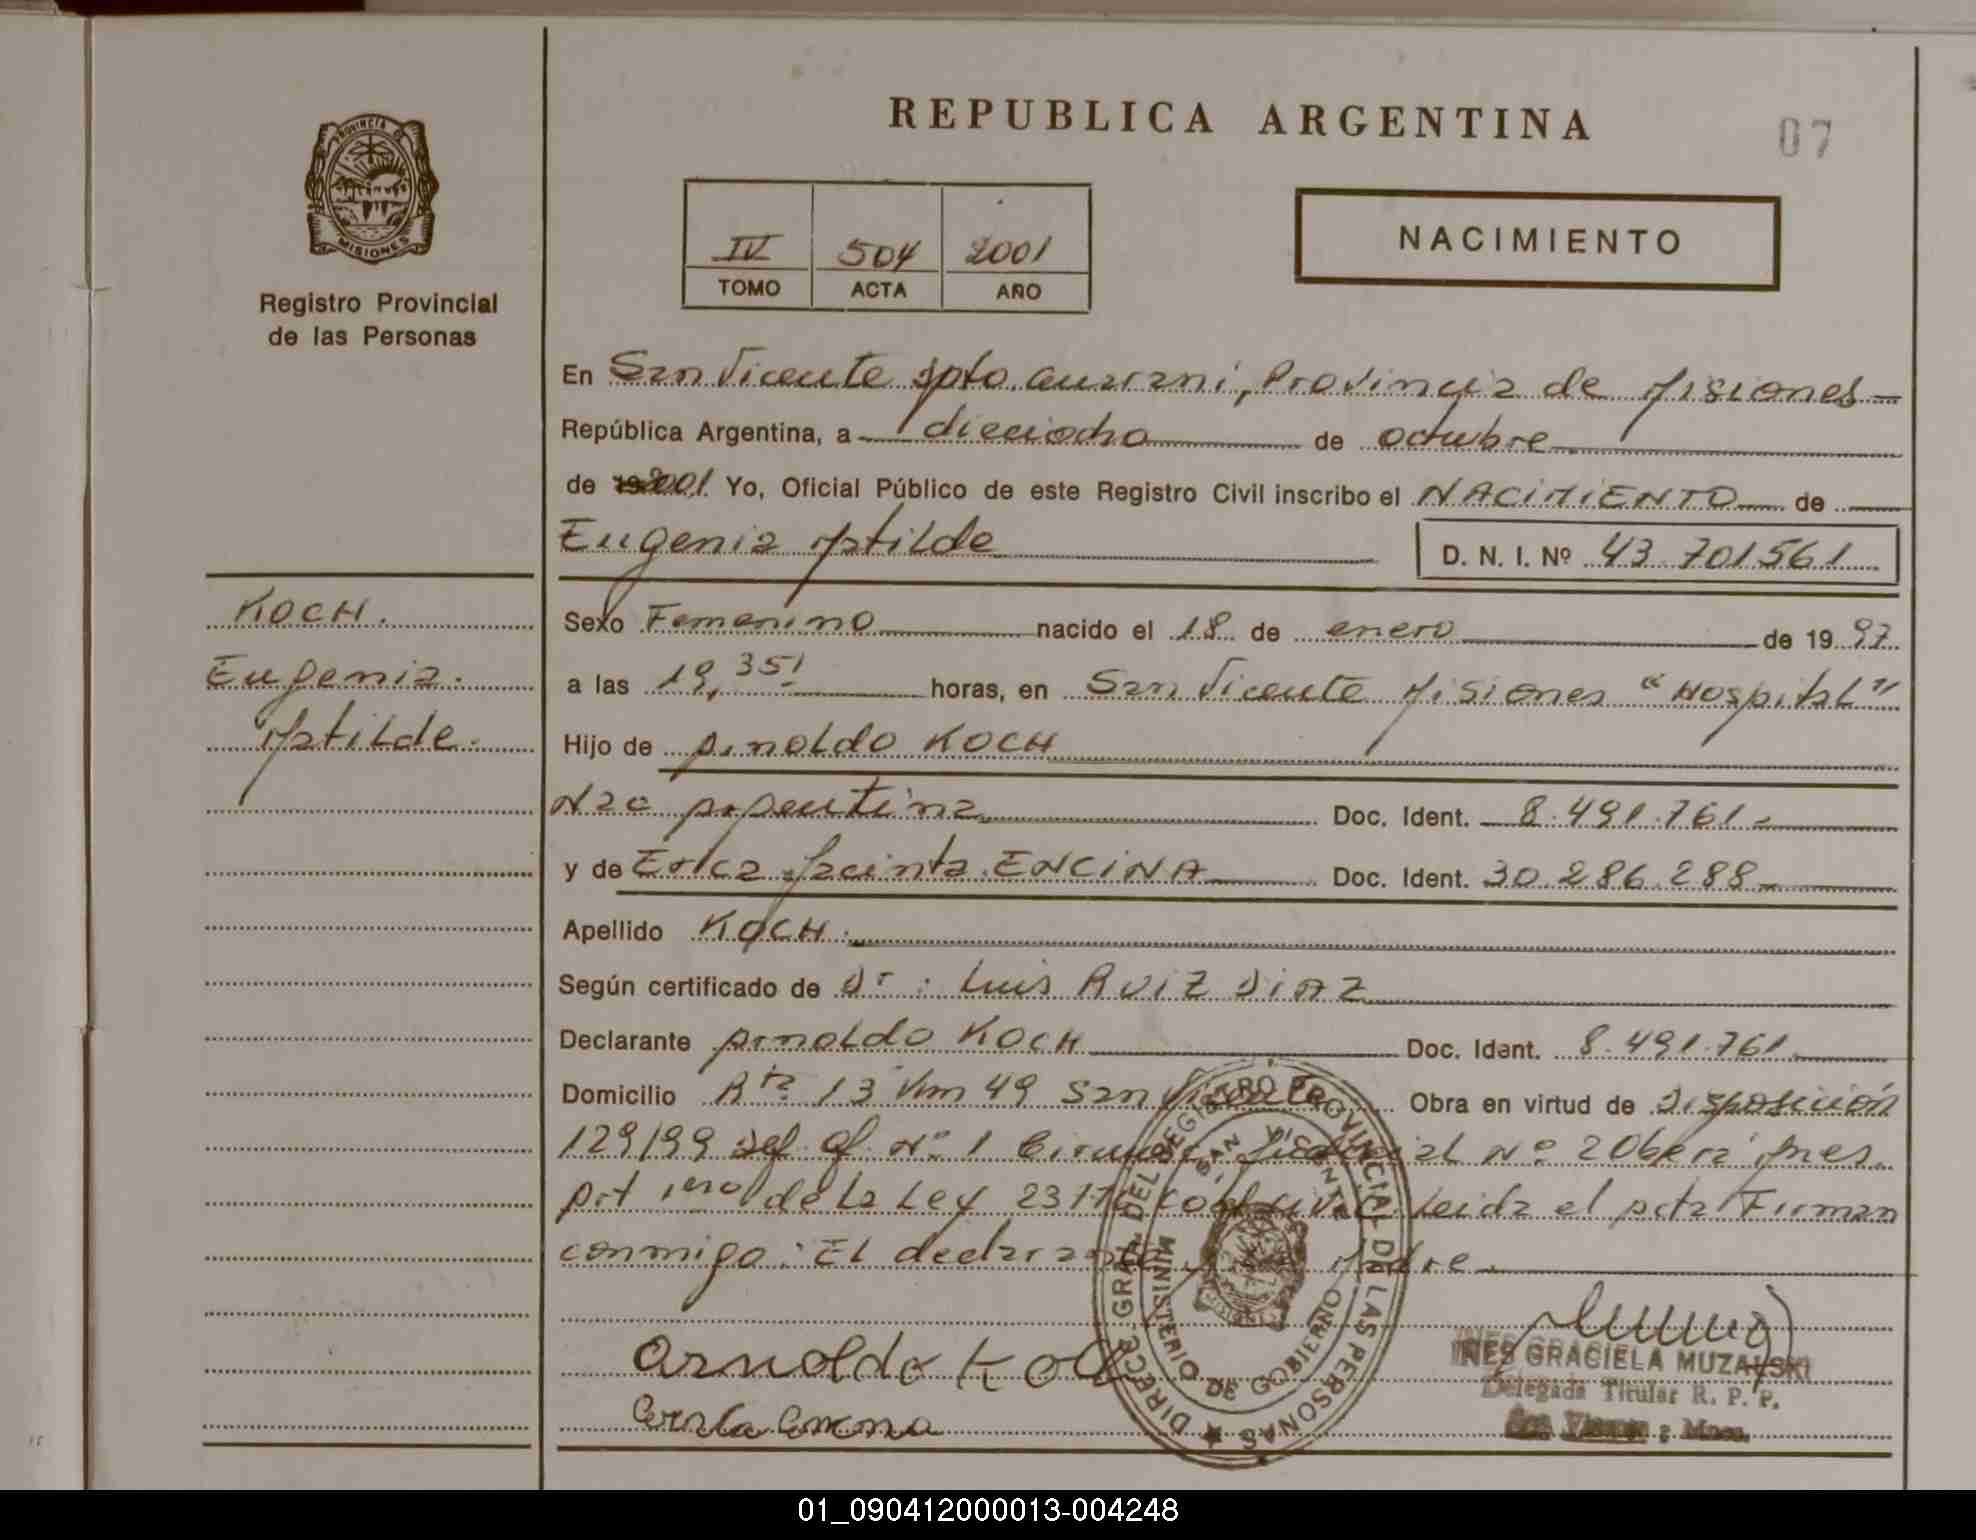 REPUBLICA ARGENTINA
07
PROVINCIA DE
MISIONES
Registro Provincial
de las Personas
IV 504 2001
TOMO ACTA AÑO
NACIMIENTO
En San Vicente Dpto. Guarani, Provincia de Misiones
República Argentina, a dieciocho de octubre
de 2001 Yo, Oficial Público de este Registro Civil inscribo el NACIMIENTO de
Eugenia Matilde
D. N. I. Nº 43.701.561
KOCH.
Eugenia.
Matilde.
Sexo Femenino nacido el 18 de enero de 1997
a las 19,35 horas, en San Vicente Misiones "Hospital"
Hijo de Arnoldo KOCH
Nac Argentina Doc. Ident. 8.491.761
y de Erica Jacinta ENCINA Doc. Ident. 30.286.288
Apellido KOCH.
Según certificado de Dr: Luis RUIZ DIAZ
Declarante Arnoldo KOCH Doc. Ident. 8.491.761
Domicilio Rta 13 Km 49 San Vicente Obra en virtud de Disposición
129/99 Def. Of. Nº 1 Judicial Nº 2 Oberá Mnes.
Art 1ero de la Ley Leida el acta Firman
conmigo: El declarante Madre
Arnoldo Koch
DIRECC. GRAL. DEL REGISTRO PROVINCIAL DE LAS PERSONAS
MINISTERIO DE GOBIERNO
SAN VICENTE
INES GRACIELA MUZALSKI
Delegada Titular R. P. P.
San Vicente : Mnes.
01_090412000013-004248